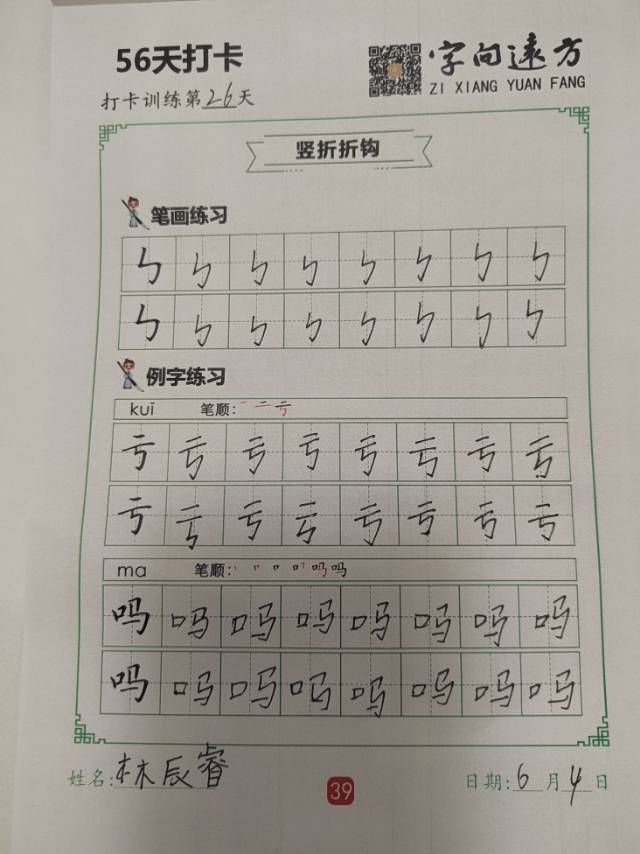 56天打卡
字向遠方
ZI XIANG YUAN FANG
打卡训练第26天
竖折折钩
笔画练习
ㄣ ㄣ ㄣ ㄣ ㄣ ㄣ ㄣ ㄣ
ㄣ ㄣ ㄣ ㄣ ㄣ ㄣ ㄣ ㄣ
例字练习
kuī 笔顺: 一 二 亏
亏 亏 亏 亏 亏 亏 亏 亏
亏 亏 亏 亏 亏 亏 亏 亏
ma 笔顺: 吗 吗
吗 吗 吗 吗 吗 吗 吗 吗
吗 吗 吗 吗 吗 吗 吗 吗
姓名: 林辰睿
39
日期: 6月4日